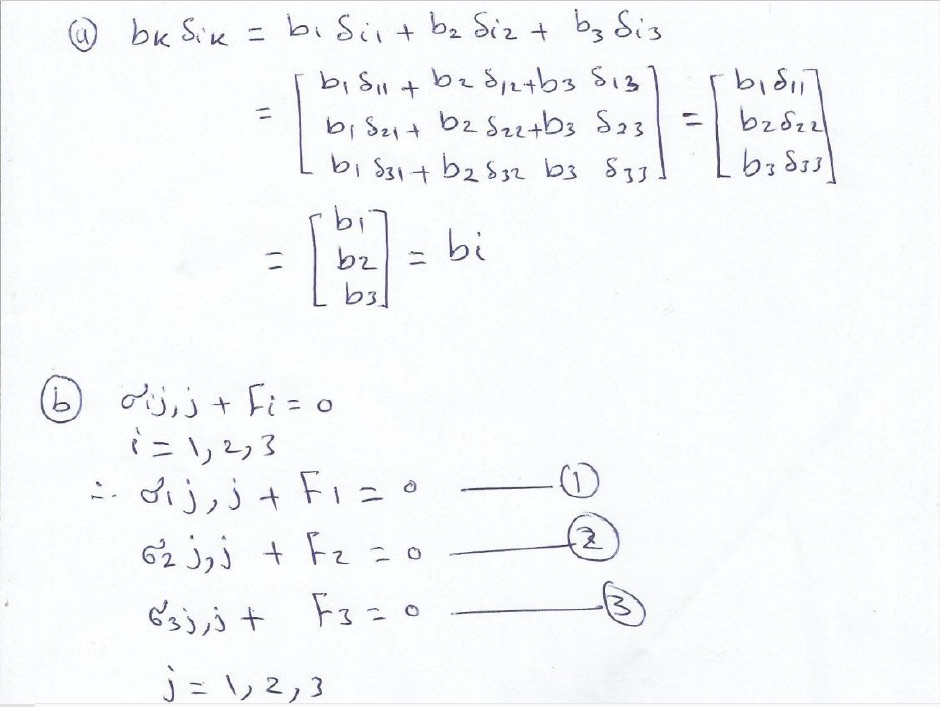 (a) bk δik = b1 δi1 + b2 δi2 + b3 δi3
= [ b1 δ11 + b2 δ12 + b3 δ13 ] = [ b1 δ11 ]
[ b1 δ21 + b2 δ22 + b3 δ23 ] [ b2 δ22 ]
[ b1 δ31 + b2 δ32 b3 δ33 ] [ b3 δ33 ]
= [ b1 ] = bi
[ b2 ]
[ b3 ]
(b) σij,j + Fi = 0
i = 1, 2, 3
∴ σ1j,j + F1 = 0 —— (1)
σ2j,j + F2 = 0 —— (2)
σ3j,j + F3 = 0 —— (3)
j = 1, 2, 3